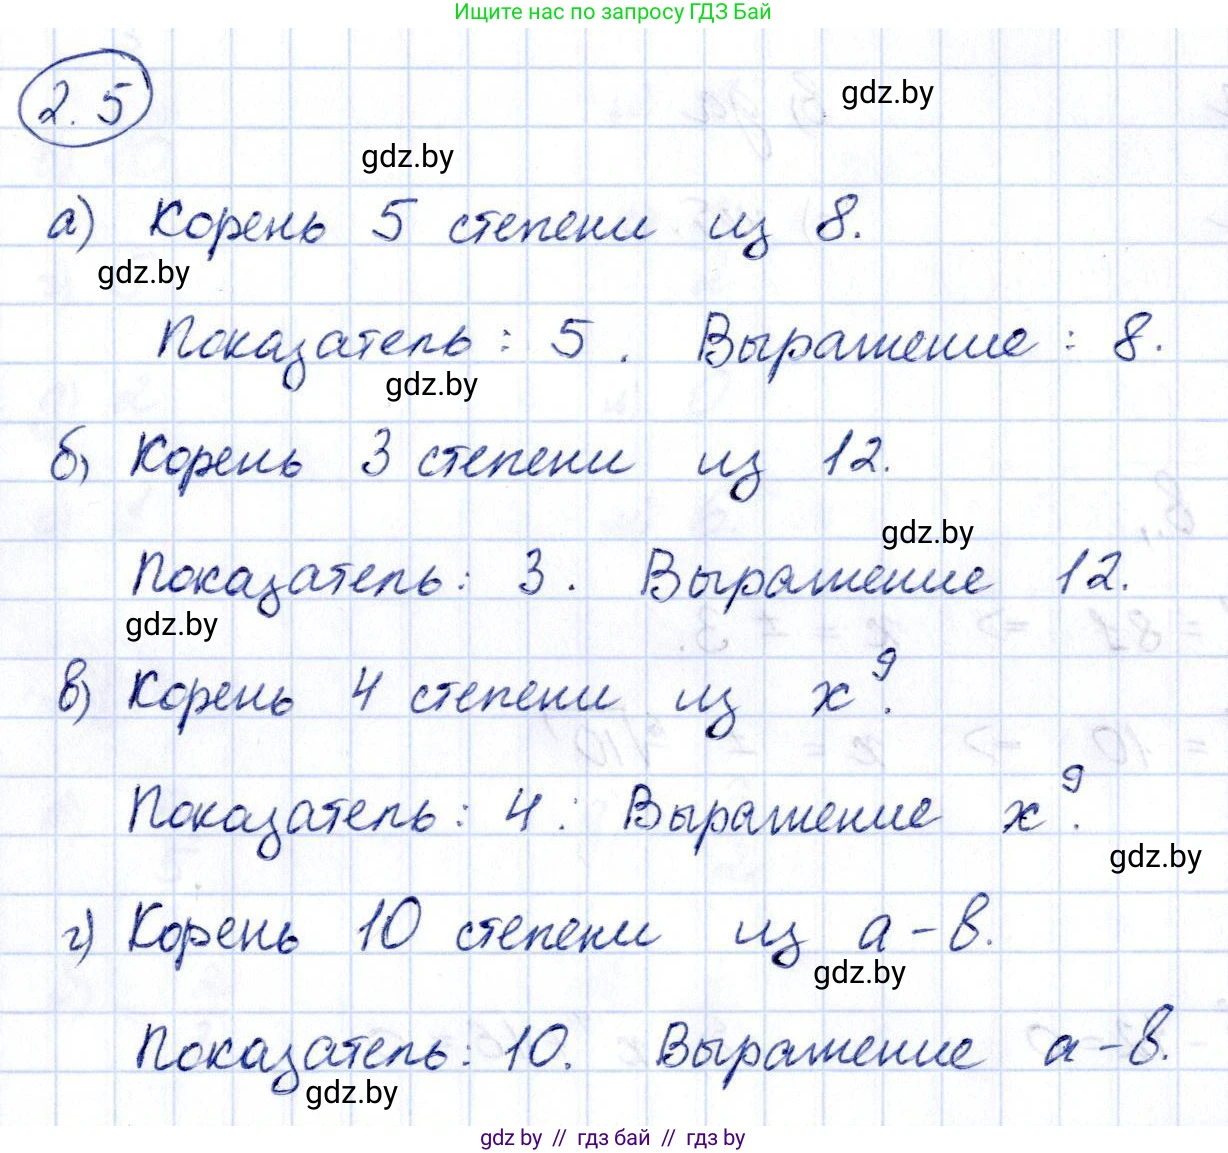 Ищите нас по запросу ГДЗ Бай
2.5
gdz.by
gdz.by
а) Корень 5 степени из 8.
gdz.by
Показатель: 5. Выражение: 8.
gdz.by
б) Корень 3 степени из 12.
gdz.by
Показатель: 3. Выражение 12.
gdz.by
в) Корень 4 степени из x⁹.
Показатель: 4. Выражение x⁹.
gdz.by
г) Корень 10 степени из a-b.
gdz.by
Показатель: 10. Выражение a-b.
gdz.by
gdz by // гдз бай // гдз by